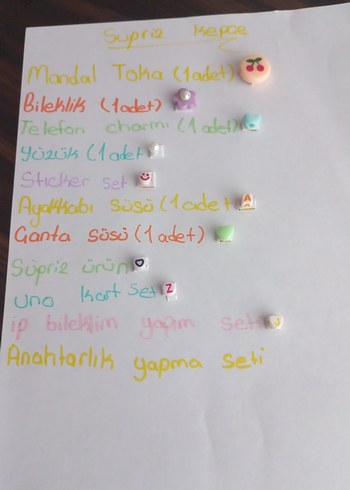 Süpriz Kepçe
Mandal Toka (1 adet)
Bileklik (1 adet)
Telefon charmı (1 adet)
Yüzük (1 adet
Sticker set
Ayakkabı süsü (1 adet
Çanta süsü (1 adet)
Süpriz ürün
uno kart set
Z
ip bileklim yapım seti
Anahtarlık yapma seti